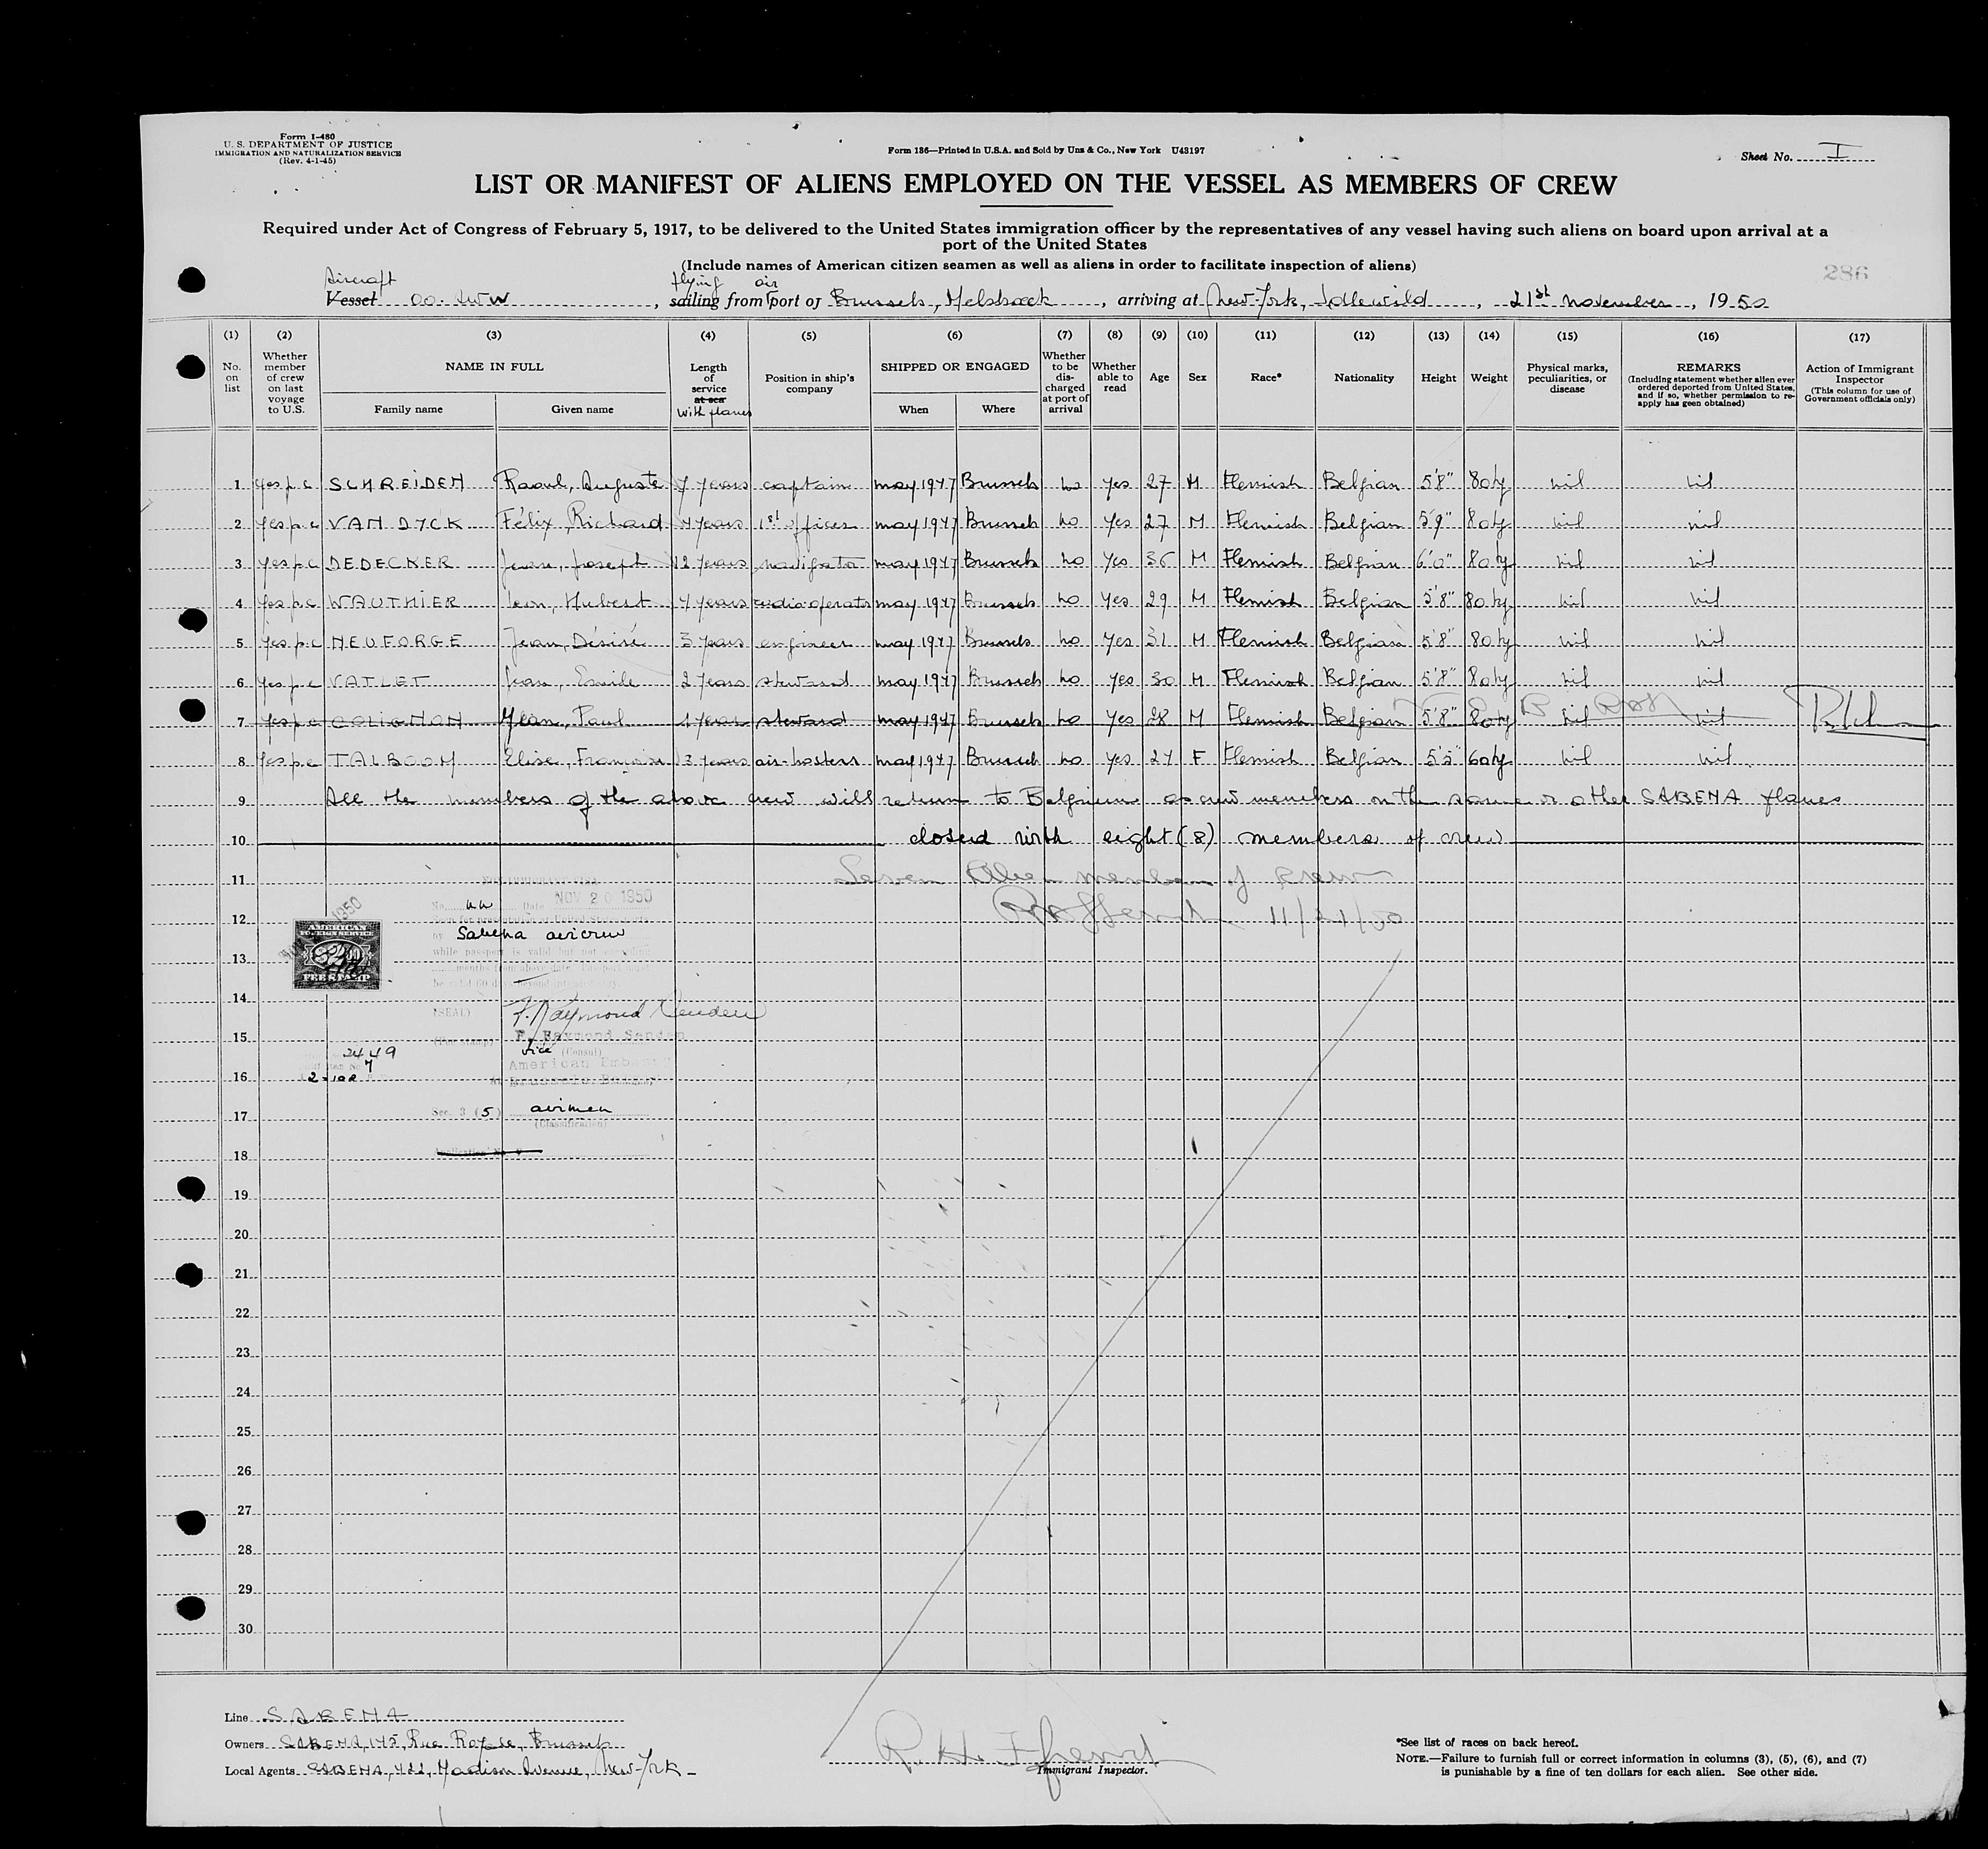 Form I-480
U. S. DEPARTMENT OF JUSTICE
IMMIGRATION AND NATURALIZATION SERVICE
(Rev. 4-1-45)
Form 136—Printed in U.S.A. and Sold by Unz & Co., New York U43197
Sheet No. I
LIST OR MANIFEST OF ALIENS EMPLOYED ON THE VESSEL AS MEMBERS OF CREW
Required under Act of Congress of February 5, 1917, to be delivered to the United States immigration officer by the representatives of any vessel having such aliens on board upon arrival at a
port of the United States
(Include names of American citizen seamen as well as aliens in order to facilitate inspection of aliens)
286
Aircraft flying air
Vessel OO. , sailing from port of Brussels, Melsbroek, arriving at New-York, Idlewild, 21st november, 1950
(1) (2) (3) (4) (5) (6) (7) (8) (9) (10) (11) (12) (13) (14) (15) (16) (17)
No. on list
Whether member of crew on last voyage to U.S.
NAME IN FULL
Family name Given name
Length of service at sea with planes
Position in ship's company
SHIPPED OR ENGAGED
When Where
Whether to be discharged at port of arrival
Whether able to read
Age
Sex
Race*
Nationality
Height
Weight
Physical marks, peculiarities, or disease
REMARKS
(Including statement whether alien ever ordered deported from United States, and if so, whether permission to re-apply has geen obtained)
Action of Immigrant Inspector
(This column for use of Government officials only)
1 yes p.c SCHREIDEN Raoul, Auguste 7 years captain may 1947 Brussels no yes 27 M Flemish Belgian 5'8" 80 kg nil nil
2 yes p.c VAN DYCK Félix, Richard 4 years 1st officer may 1947 Brussels no yes 27 M Flemish Belgian 5'9" 80 kg nil nil
3 yes p.c DEDECKER Jean, Joseph 12 years navigator may 1947 Brussels no yes 36 M Flemish Belgian 6'0" 80 kg nil nil
4 yes p.c WAUTHIER Leon, Hubert 4 years radio-operator may 1947 Brussels no yes 29 M Flemish Belgian 5'8" 80 kg nil nil
5 yes p.c NEUFORGE Jean, Désiré 3 years engineer may 1947 Brussels no yes 31 M Flemish Belgian 5'8" 80 kg nil nil
6 yes p.c VATLET Jean, Emile 2 years steward may 1947 Brussels no yes 30 M Flemish Belgian 5'8" 80 kg nil nil
7 yes p.c COLIGNON Jean, Paul 4 years steward may 1947 Brussels no yes 28 M Flemish Belgian 5'8" 80 kg nil nil
8 yes p.c TALBOOM Elise, Françoise 3 years air-hostess may 1947 Brussels no yes 27 F Flemish Belgian 5'5" 60 kg nil nil
9 All the members of the above crew will return to Belgium as crew members on the same or other SABENA planes
10 closed with eight (8) members of crew
11 Seven Alien members of Crew
12 11/21/50
13
14
15
16
17
18
19
20
21
22
23
24
25
26
27
28
29
30
No. Date NOV 20 1950
Sabena aircrew
while passport is valid but not exceeding
months from above date. Passport must
AMERICAN
FOREIGN SERVICE
FEE STAMP
(SEAL)
F. Raymond Senden
F. Raymond Senden
vice (Consul)
American Embassy
2449
7
Sec. 3 (5) airmen
(Classification)
Line SABENA
Owners SABENA, 145, Rue Royale, Brussels
Local Agents SABENA, 422, Madison Avenue, New-York
Immigrant Inspector.
*See list of races on back hereof.
NOTE.—Failure to furnish full or correct information in columns (3), (5), (6), and (7)
is punishable by a fine of ten dollars for each alien. See other side.